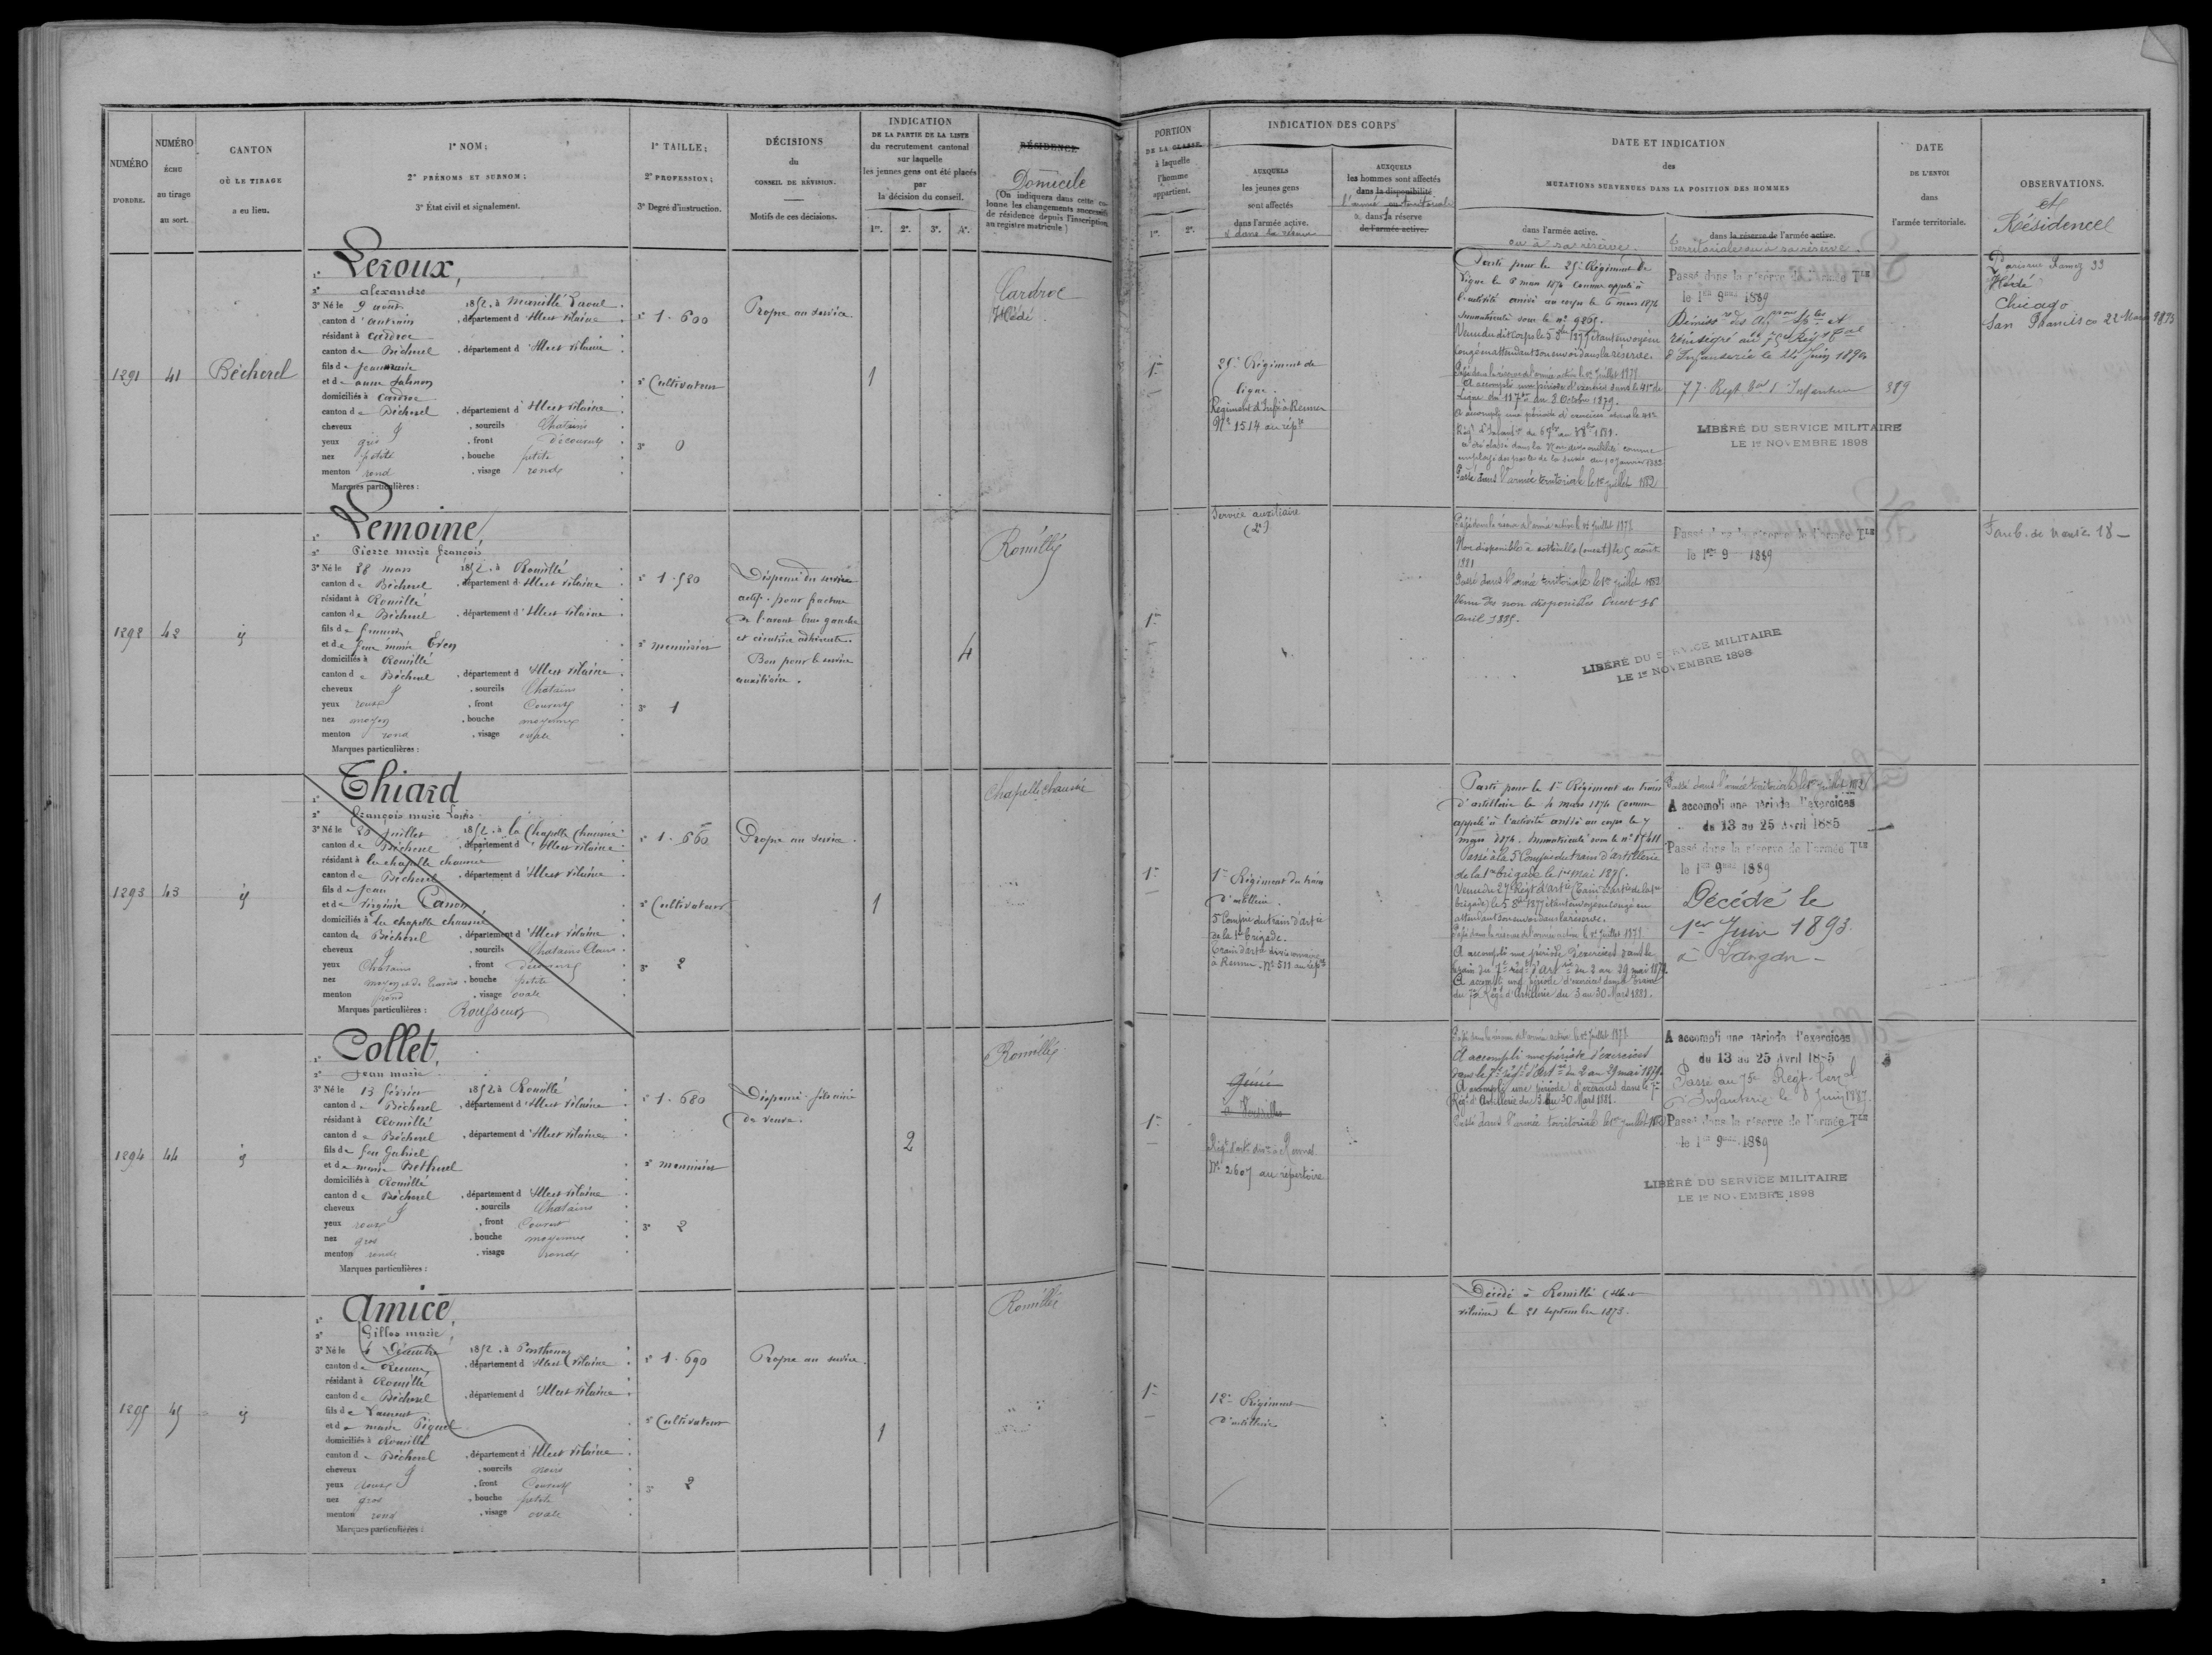 NUMÉRO
D'ORDRE.
NUMÉRO
ÉCHU
au tirage
au sort.
CANTON
OÙ LE TIRAGE
a eu lieu.
1° NOM;
2° PRÉNOMS ET SURNOM;
3° État civil et signalement.
1° TAILLE;
2° PROFESSION;
3° Degré d'instruction.
DÉCISIONS
du
CONSEIL DE RÉVISION.
Motifs de ces décisions.
INDICATION
DE LA PARTIE DE LA LISTE
du recrutement cantonal
sur laquelle
les jeunes gens ont été placés
par
la décision du conseil.
1re. 2e. 3e. 4e.
RÉSIDENCE
Domicile
(On indiquera dans cette colonne
les changements successifs
de résidence depuis l'inscription
au registre matricule.)
PORTION
DE LA CLASSE
à laquelle
l'homme
appartient.
1re. 2e.
INDICATION DES CORPS
AUXQUELS
les jeunes gens
sont affectés
dans l'armée active.
& dans la réserve
AUXQUELS
les hommes sont affectés
dans la disponibilité
l'armée territoriale
dans la réserve
de l'armée active.
DATE ET INDICATION
des
MUTATIONS SURVENUES DANS LA POSITION DES HOMMES
dans l'armée active.
ou à sa réserve.
dans la réserve de l'armée active.
Territoriale ou à sa réserve.
DATE
DE L'ENVOI
dans
l'armée territoriale.
OBSERVATIONS.
et
Résidence
1291
41
Bécherel
1° Leroux,
2° alexandre
3° Né le 9 août 1852, à
canton d'antrain, département d'Illeet vilaine
résidant à Cardroc
canton de Bécherel, département d'Illeet vilaine
fils de Jean
et de anne
domiciliés à Cardroc
canton de Bécherel, département d'Illeet vilaine
cheveux & sourcils Chatains
yeux gris, front découvert
nez petit, bouche petite
menton rond, visage rond
Marques particulières :
1° 1.600
2° Cultivateur
3° 0
Propre au service.
1
Cardroc
Hédé.
1re
25e Régiment de
ligne.
Régiment d'Inf. à Rennes
No 1514 au rép.re
Parti pour le 25e Régiment de
ligne le 6 mars 1874 Comme appelé à
l'activité arrivé au corps le 6 mars 1874
Immatriculé sous le no 9265.
Passé dans la réserve de l'armée active le 1er Juillet 1878.
A accompli une période d'exercices dans le 41e de
Ligne du 11 7bre au 8 Octobre 1879.
A accompli une période d'exercices dans le 41e
Passé dans l'armée territoriale le 1er juillet 1882
Passé dans la réserve de l'armée Tle
le 1er 9bre 1889
77e Regt d'Infanterie
LIBÉRÉ DU SERVICE MILITAIRE
LE 1er NOVEMBRE 1898
389
Hédé
Chicago
San Francisco 22 Mars 1893
1292
42
id
1° Lemoine,
2° Pierre marie françois
3° Né le 28 mars 1852, à Romillé
canton de Bécherel, département d'Illeet vilaine
résidant à Romillé
canton de Bécherel, département d'Illeet vilaine
fils de françois
et de feue marie Even
domiciliés à Romillé
canton de Bécherel, département d'Illeet vilaine
cheveux & sourcils Chatains
yeux roux, front Couvert
nez moyen, bouche moyenne
menton rond, visage ovale
Marques particulières :
1° 1.580
2° menuisier
3° 1
Dispensé du service
actif. pour fracture
de l'avant bras gauche
et cicatrice adhérente.
Bon pour le service
auxiliaire.
4
Romillé
1re
Service auxiliaire
(2e)
Passé dans la réserve de l'armée active le 1er Juillet 1878
Non disponible (ouest) le 5 août
1881
Passé dans l'armée territoriale le 1er juillet 1882
Venu des non disponibles Ouest 16
avril 1885.
Passé dans la réserve de l'armée Tle
le 1er 9bre 1889
LIBÉRÉ DU SERVICE MILITAIRE
LE 1er NOVEMBRE 1898
Faub. de Nantes 18
1293
43
id
1° Thiard
2° François marie Louis
3° Né le 25 Juillet 1852, à la Chapelle Chaussée
canton de Bécherel, département d'Illeet vilaine
résidant à la chapelle chaussée
canton de Bécherel, département d'Illeet vilaine
fils de Jean
et de virginie Canon
domiciliés à la chapelle chaussée
canton de Bécherel, département d'Illeet vilaine
cheveux & sourcils Chatains Clairs
yeux Chatains, front découvert
nez moyen, bouche petite
menton rond, visage ovale
Marques particulières : Rousseurs
1° 1.660
2° Cultivateur
3° 2
Propre au service.
1
Chapelle chaussée
1re
1er Régiment du train
d'artillerie.
5e Compie du train d'artie
de la 1re brigade.
Train d'artie divisionnaire
à Rennes. No 511 au répre
Parti pour le 1er Régiment du train
d'artillerie le 4 mars 1874 Comme
appelé à l'activité arrivé au corps le 7
mars 1874. Immatriculé sous le no 15411
Passé à la 5e Compie du train d'artillerie
de la 1re brigade le 1er mai 1875.
attendant son envoi dans la réserve.
Passé dans la réserve de l'armée active le 1er Juillet 1878
A accompli une période d'exercices dans le
train du 7e régt d'artie du 2 au 29 mai 1879.
A accompli une période d'exercices dans le train
du 7e Régt d'Artillerie du 3 au 30 Mars 1881.
Passé dans l'armée territoriale le 1er juillet 1882
A accompli une période d'exercices
du 13 au 25 Avril 1885
Passé dans la réserve de l'armée Tle
le 1er 9bre 1889
Décédé le
1er Juin 1893
à Langan
1294
44
id
1° Collet,
2° Jean marie
3° Né le 13 février 1852, à Romillé
canton de Bécherel, département d'Illeet vilaine
résidant à Romillé
canton de Bécherel, département d'Illeet vilaine
fils de feu Gabriel
et de marie Bethuel
domiciliés à Romillé
canton de Bécherel, département d'Illeet vilaine
cheveux & sourcils Chatains
yeux roux, front Couvert
nez gros, bouche moyenne
menton rond, visage rond
Marques particulières :
1° 1.680
2° menuisier
3° 2
Dispensé. fils aîné
de veuve.
2
Romillé
1re
Génie
à Versailles
Régt d'artie à Rennes
No 2607 au répertoire
Passé dans la réserve de l'armée active le 1er Juillet 1878
A accompli une période d'exercices
dans le 7e régt d'artie du 2 au 29 mai 1879.
A accompli une période d'exercices dans le 7e
Régt d'Artillerie du 3 au 30 Mars 1881.
Passé dans l'armée territoriale le 1er juillet 1882
A accompli une période d'exercices
du 13 au 25 Avril 1885
Passé au 75e Régt terral
d'Infanterie le 8 Juin 1887
Passé dans la réserve de l'armée Tle
le 1er 9bre 1889
LIBÉRÉ DU SERVICE MILITAIRE
LE 1er NOVEMBRE 1898
1295
45
id
1° Amice,
2° Gilles marie,
3° Né le 6 Décembre 1852, à
canton de Rennes, département d'Illeet vilaine
résidant à Romillé
canton de Bécherel, département d'Illeet vilaine
fils de Laurent
et de marie Piquet
domiciliés à Romillé
canton de Bécherel, département d'Illeet vilaine
cheveux & sourcils noirs
yeux roux, front Couvert
nez gros, bouche petite
menton rond, visage ovale
Marques particulières :
1° 1.690
2° Cultivateur
3° 2
Propre au service.
1
Romillé
1re
12e Régiment
d'artillerie
Décédé à Romillé (Ille et
vilaine) le 21 septembre 1873.